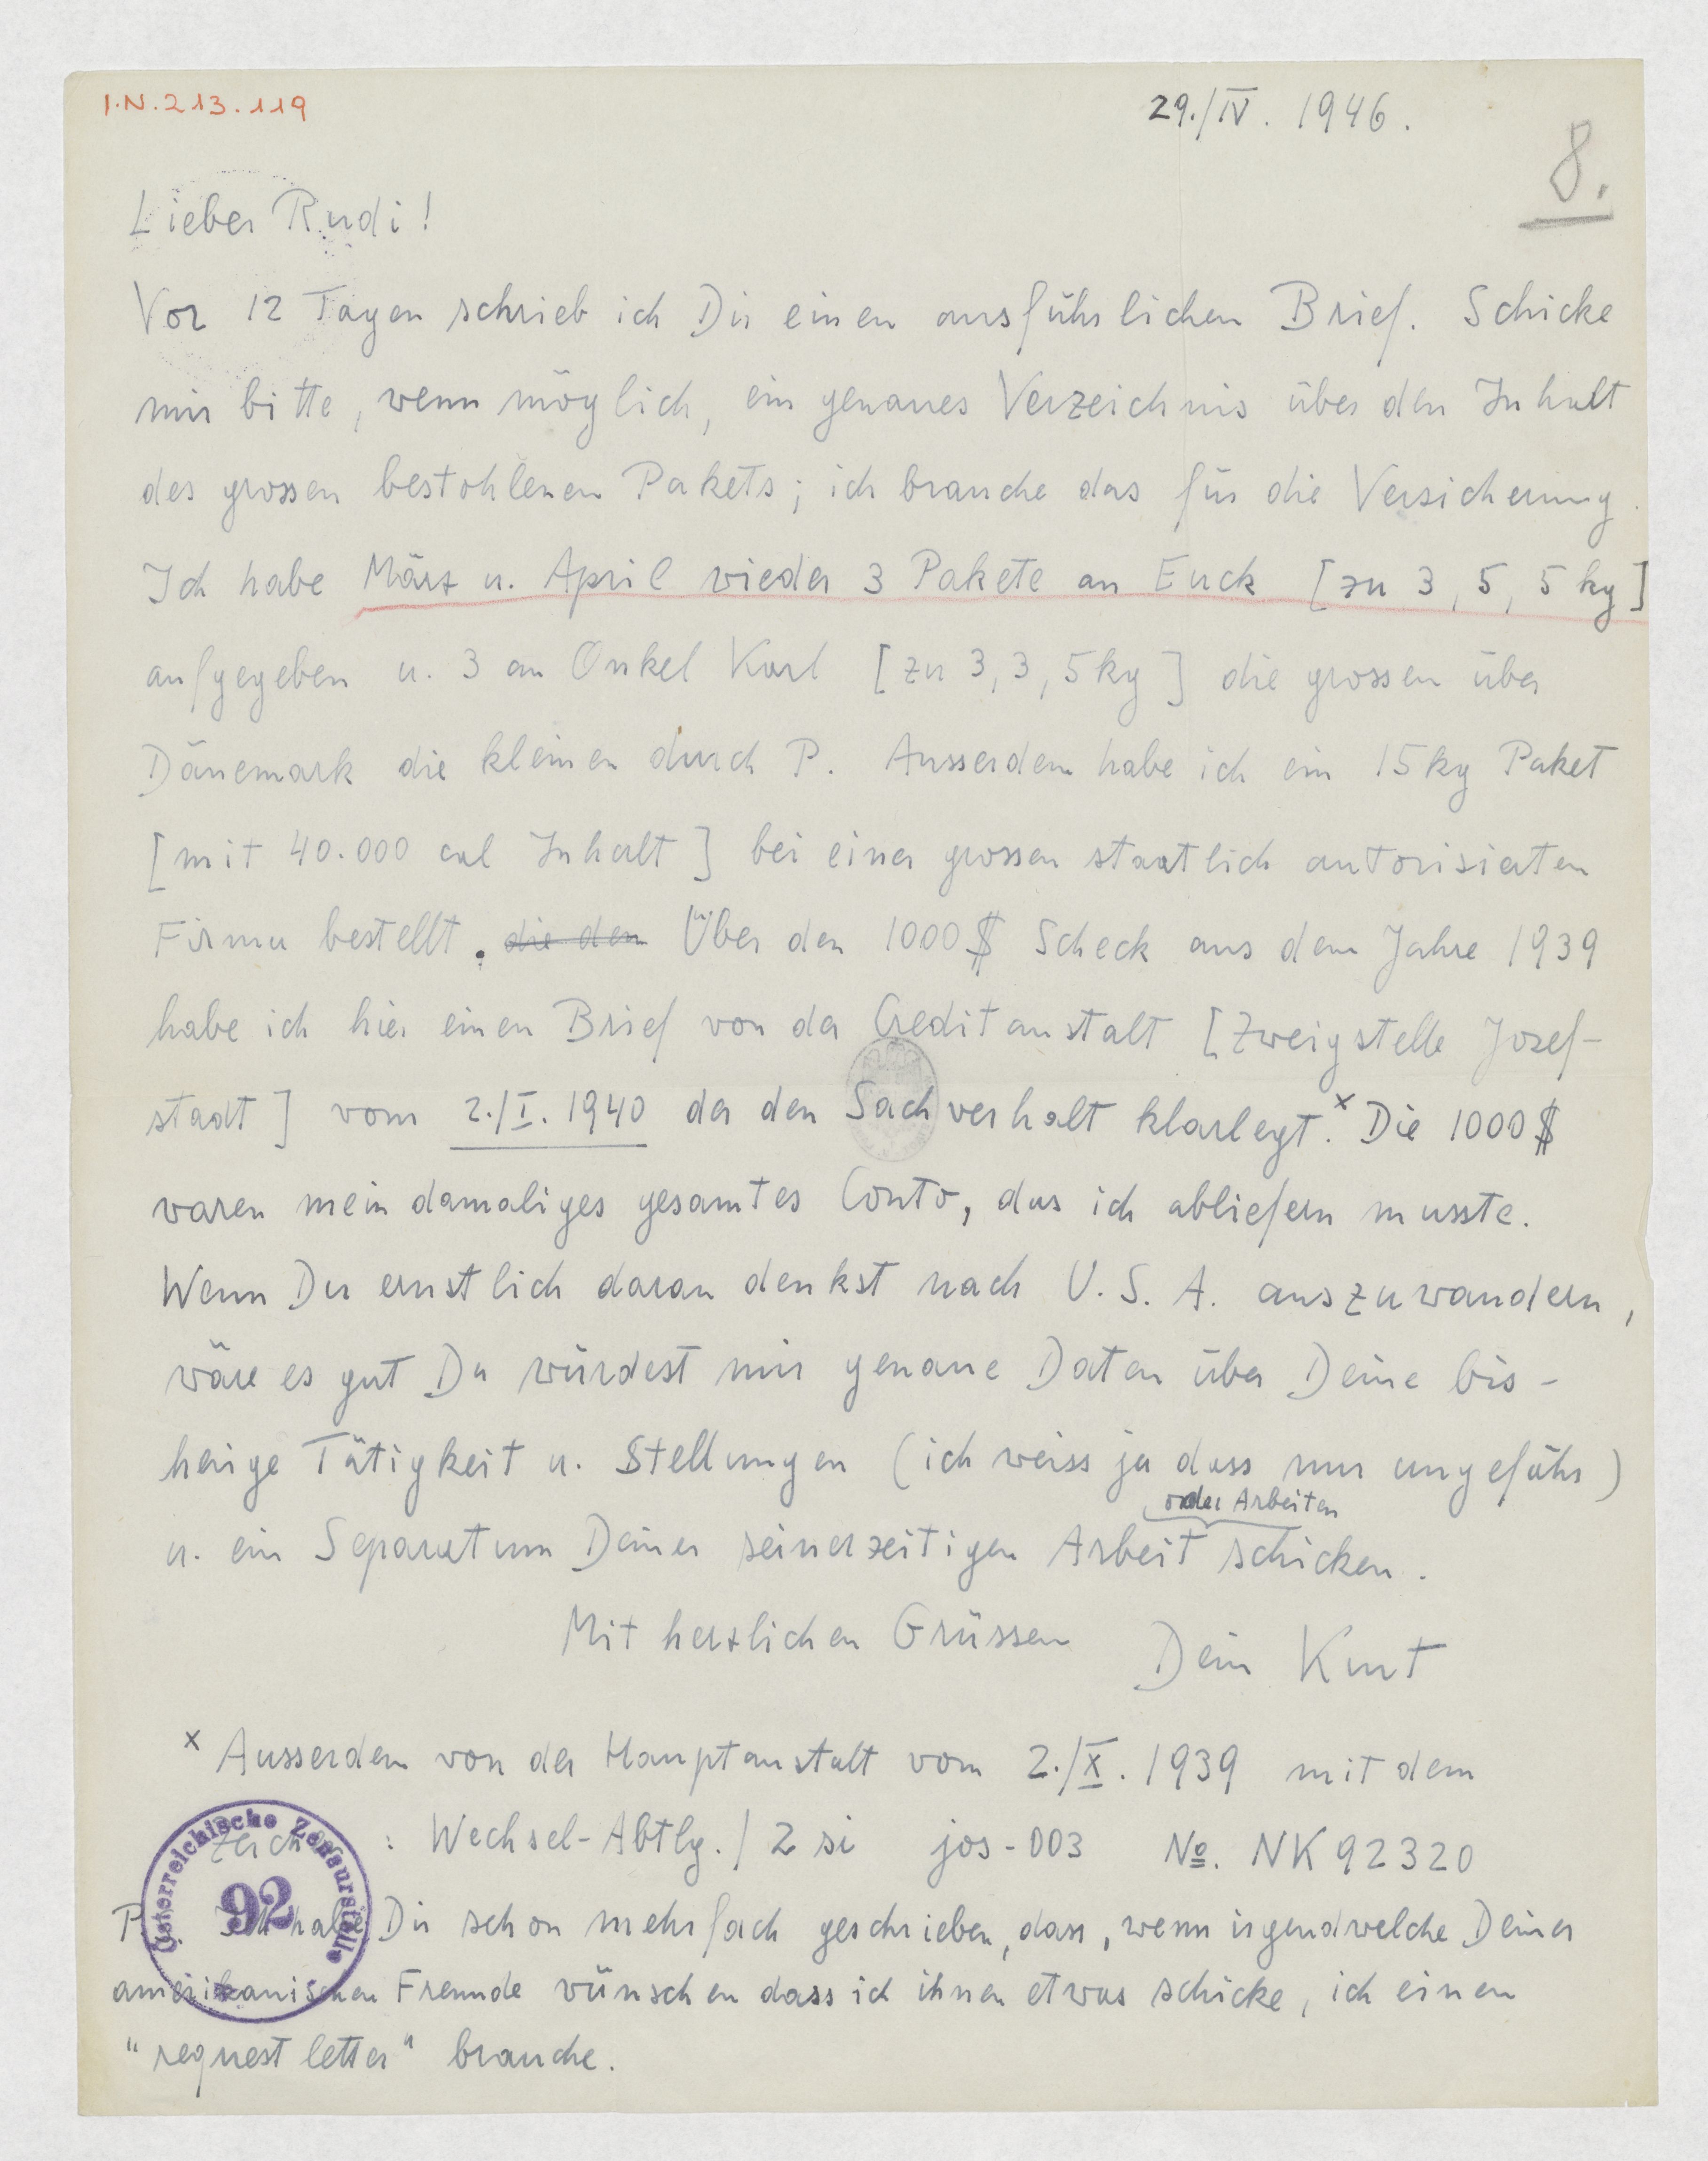 I.N. 213.119
29./IV. 1946.
8.
Lieber Rudi!
Vor 12 Tagen schrieb ich Dir einen ausführlichen Brief. Schicke
mir bitte, wenn möglich, ein genaues Verzeichnis über den Inhalt
des grossen bestohlenen Pakets; ich brauche das für die Versicherung.
Ich habe März u. April wieder 3 Pakete an Euck [zu 3, 5, 5 kg]
aufgegeben u. 3 an Onkel Karl [zu 3, 3, 5 kg] die grossen über
Dänemark die kleinen durch P. Ausserdem habe ich ein 15 kg Paket
[mit 40.000 cal Inhalt] bei einer grossen staatlich autorisierten
Firma bestellt. die den Über den 1000 $ Scheck aus dem Jahre 1939
habe ich hier einen Brief von der Creditanstalt [Zweigstelle Josef-
stadt] vom 2./I. 1940 der den Sachverhalt klarlegt.ˣ Die 1000 $
waren mein damaliges gesamtes Conto, das ich abliefern musste.
Wenn Du ernstlich daran denkst nach U.S.A. auszuwandern,
wäre es gut Du würdest mir genaue Daten über Deine bis-
herige Tätigkeit u. Stellungen (ich weiss ja dass nur ungefähr)
oder Arbeiten
u. ein Separatum Deiner seinerzeitigen Arbeit schicken.
Mit herzlichen Grüssen Dein Kurt
ˣ Ausserdem von der Hauptanstalt vom 2./X. 1939 mit dem
Zeichen: Wechsel-Abtlg./2 si jos-003 No. NK 92320
Ich habe Dir schon mehrfach geschrieben, dass, wenn irgendwelche Deiner
amerikanischen Freunde wünschen dass ich ihnen etwas schicke, ich einen
"request letter" brauche.
Österreichische Zensurstelle
92